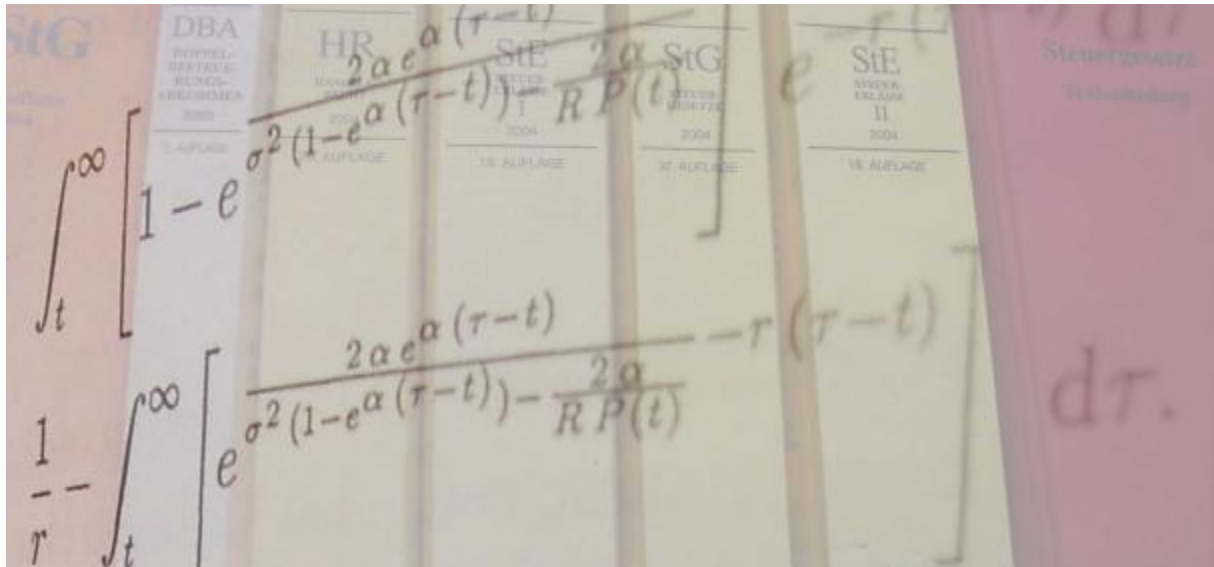 StG
DBA
DOPPEL-
BESTEUE-
RUNGS-
ABKOMMEN
HR
StE
STEUER-
ERLASSE
I
2004
18. AUFLAGE
StG
STEUER-
GESETZE
2004
37. AUFLAGE
StE
STEUER-
ERLASSE
II
2004
18. AUFLAGE
Steuergesetze
Textsammlung
∫_t^∞ [1 − e^{\frac{2 α e^{α (τ−t)}}{σ^2 (1−e^{α (τ−t)})−\frac{2 α}{R P(t)}}}] e^{−r (τ−t)} dτ
\frac{1}{r} − ∫_t^∞ [e^{\frac{2 α e^{α (τ−t)}}{σ^2 (1−e^{α (τ−t)})−\frac{2 α}{R P(t)}} −r (τ−t)}] dτ.